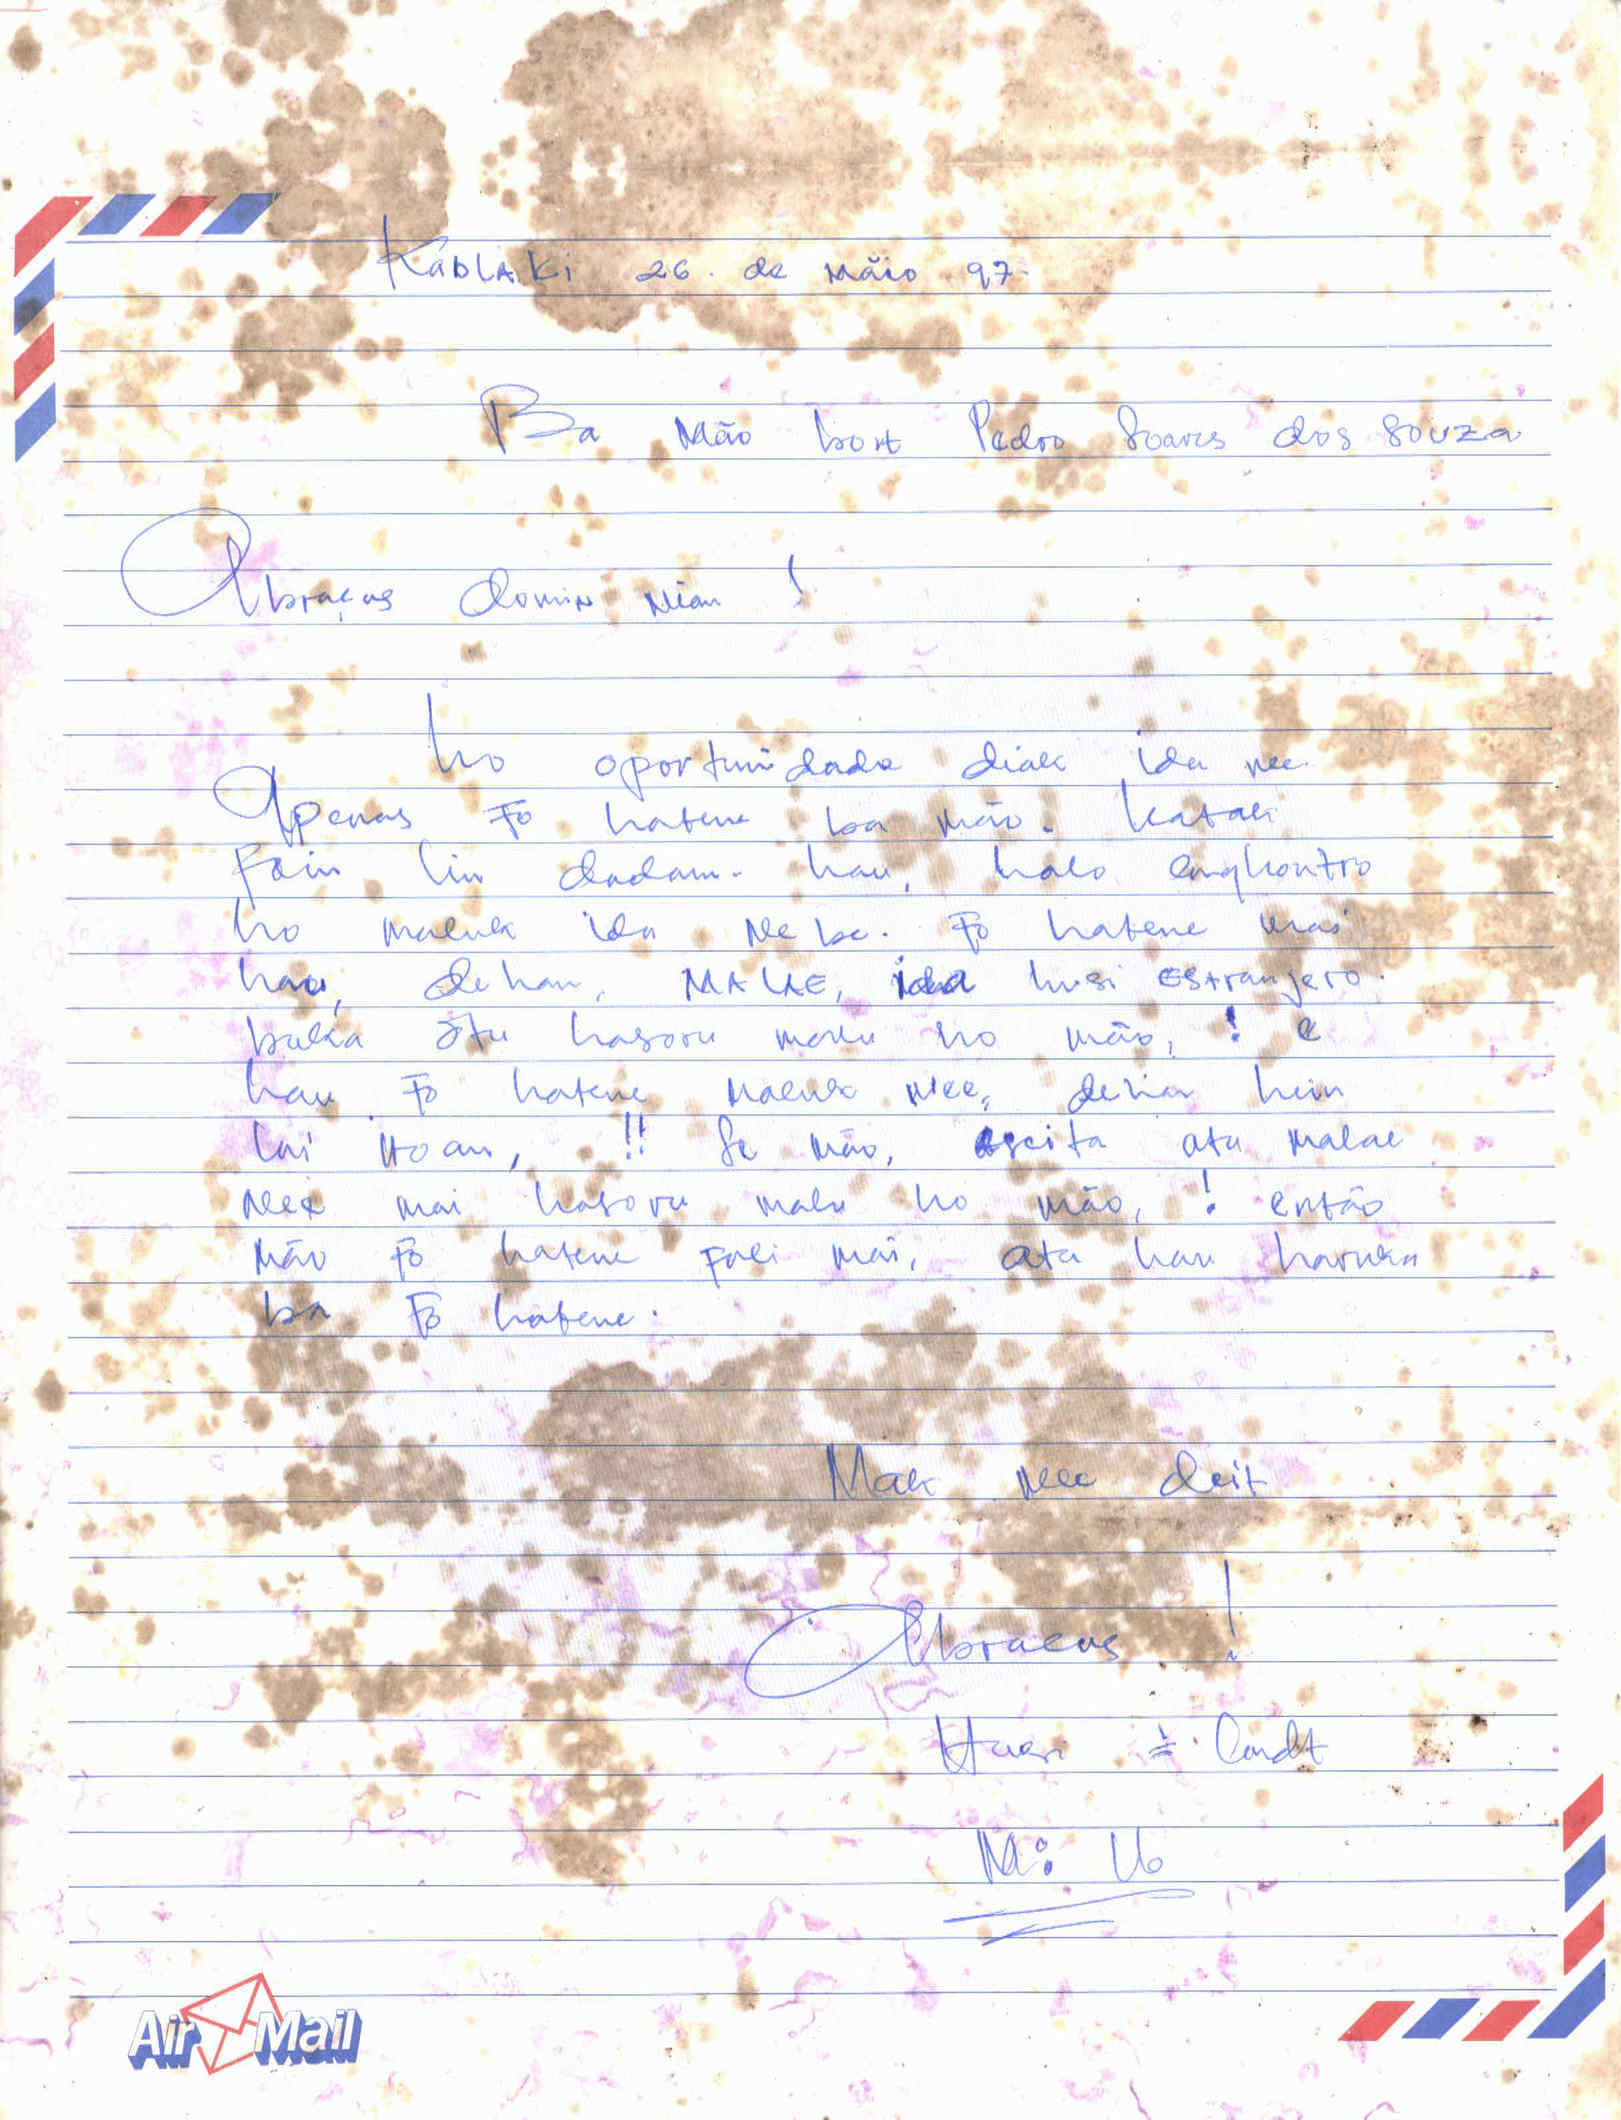 Kablaki 26. de Mãio 97.
Ba Mão bot Pedro Soares dos Souza
Abraços domin nian !
ho oportunidade diak ida nee.
Apenas Fo hatene ba mão. katak
Foin lin dadaun. hau, halo enqkontro
ho maluk ida Nebe. Fo hatene mai
hau, dehan, MALAE, ida husi Estranjero.
buka atu hasoru malu ho mão, ! e
hau Fo hatene Maluk nee, dehan hein
lai Hoan, !! Se Mão, aseita atu malae
Nee mai hasoru malu ho mão, ! então
Mão Fo hatene Fali mai, atu hau haruka
ba Fo hatene.
Mak nee deit
Abracus !
Husi
M: Ub
Air Mail